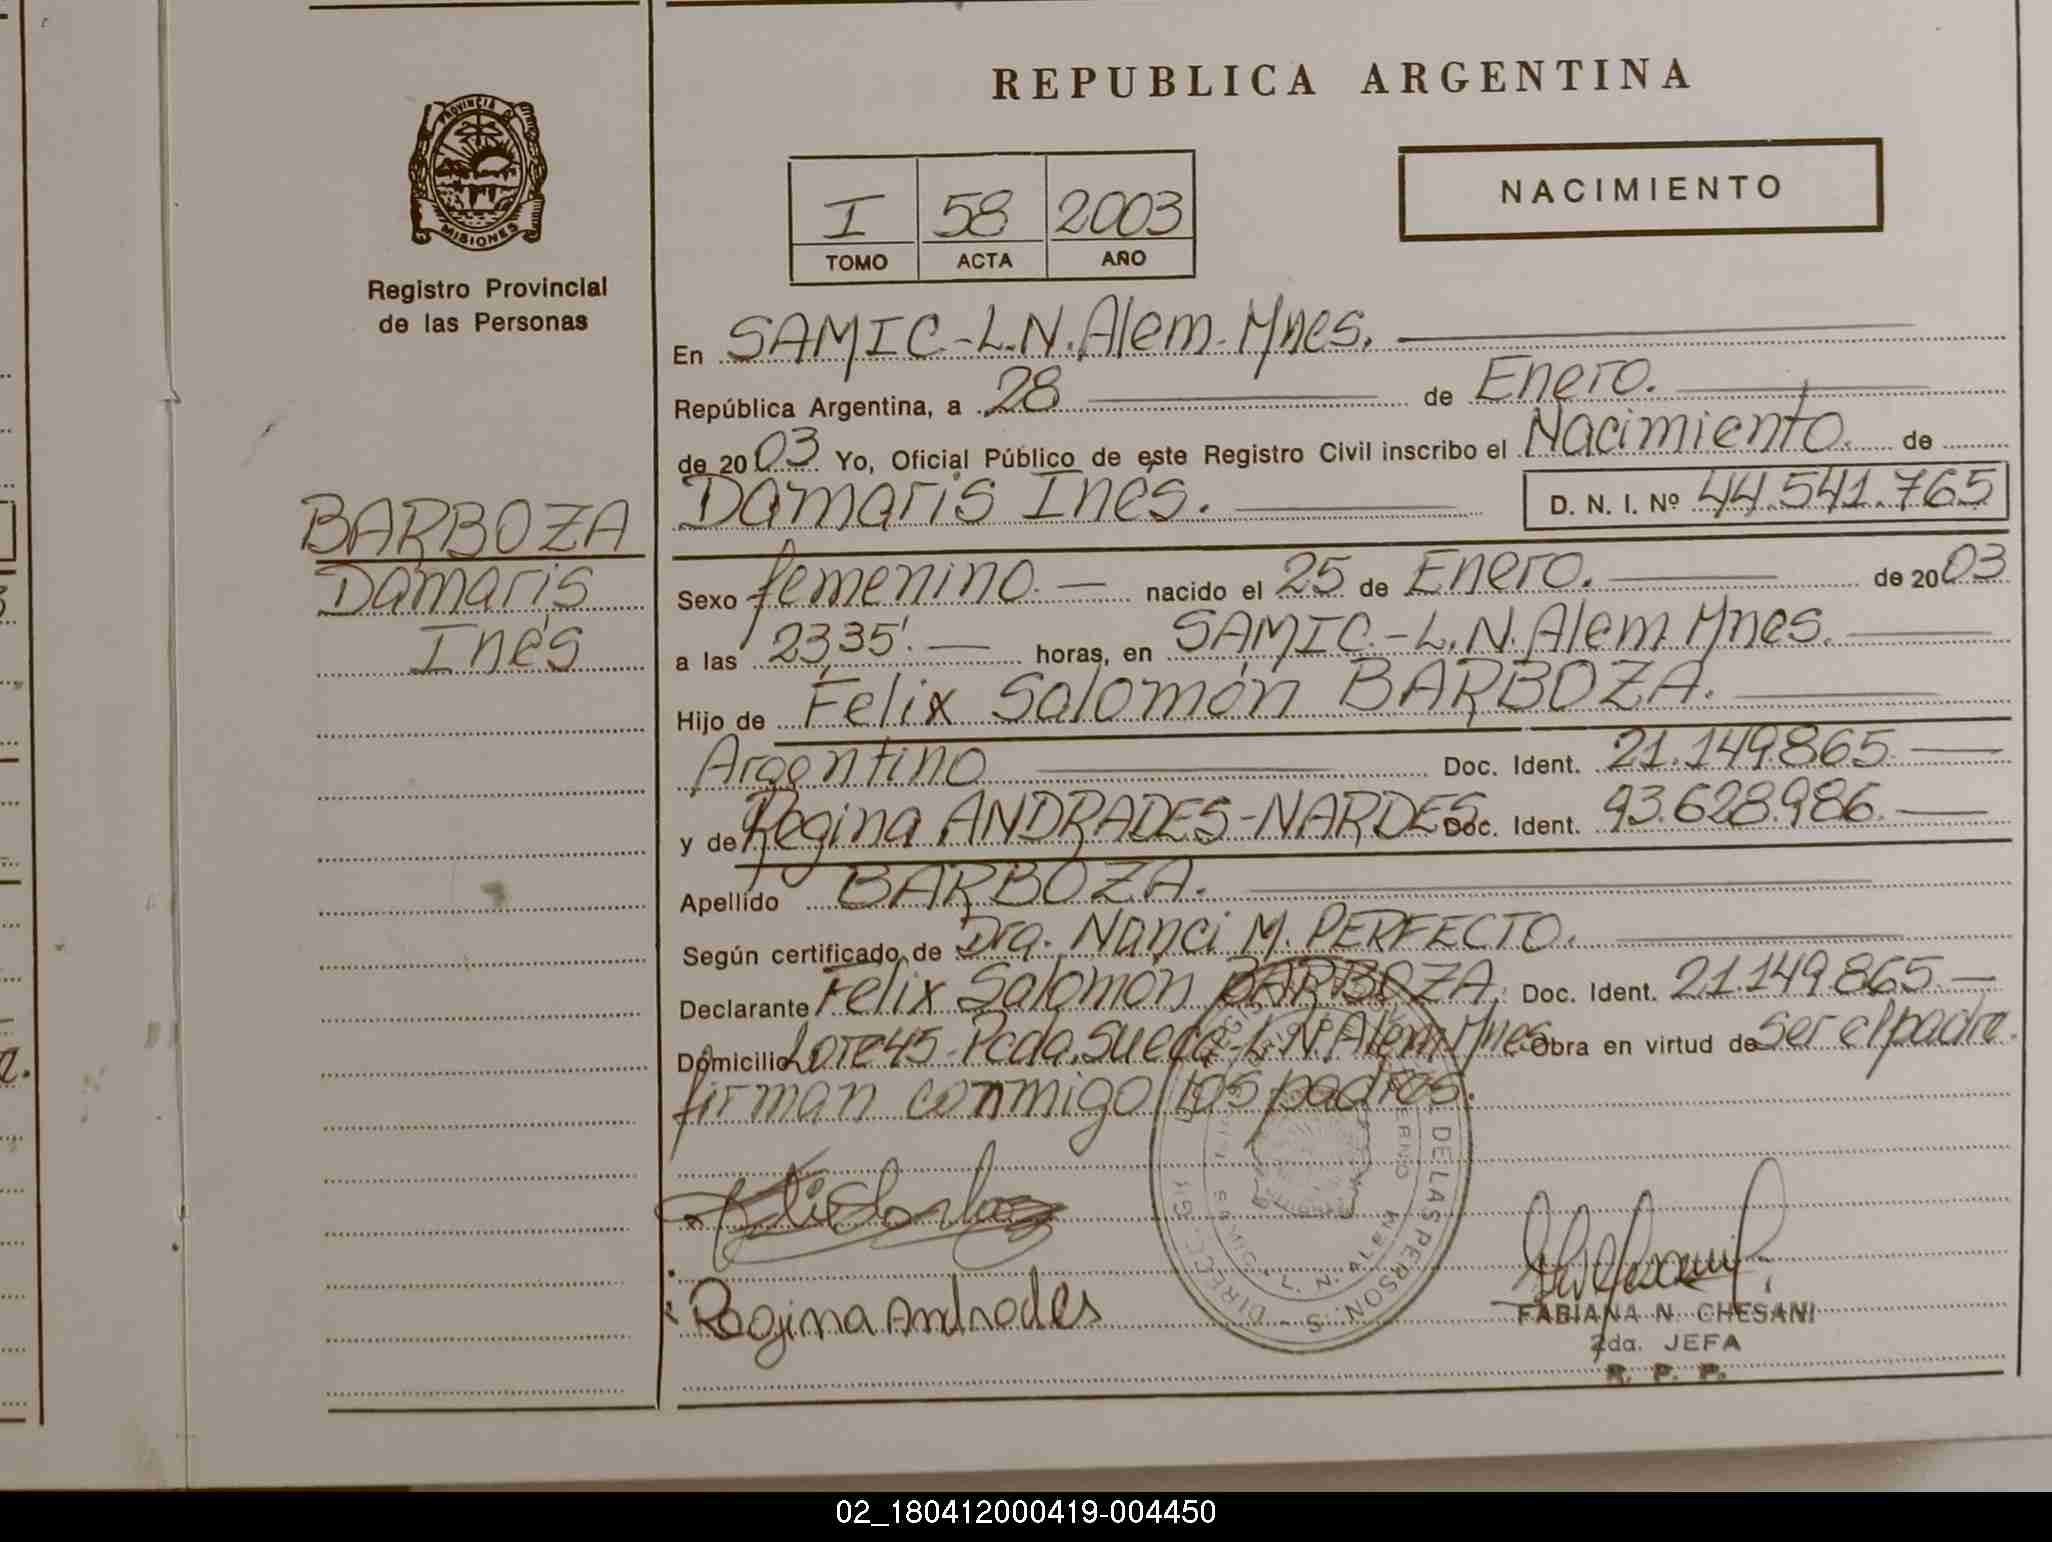 REPUBLICA ARGENTINA
PROVINCIA DE
MISIONES
Registro Provincial
de las Personas
I 58 2003
TOMO ACTA AÑO
NACIMIENTO
En SAMIC-L.N.Alem-Mnes.
República Argentina, a 28 de Enero.
de 2003 Yo, Oficial Público de este Registro Civil inscribo el Nacimiento. de
Damaris Inés. D. N. I. Nº 44.541.765
BARBOZA
Damaris
Inés
Sexo femenino. nacido el 25 de Enero. de 2003
a las 23,35'. horas, en SAMIC.-L.N.Alem.Mnes.
Hijo de Felix Salomón BARBOZA.
Argentino Doc. Ident. 21.149.865.
y de Regina ANDRADES-NARDES Doc. Ident. 93.628.986.
Apellido BARBOZA.
Según certificado de Dra. Nanci M. PERFECTO.
Declarante Felix Salomón BARBOZA. Doc. Ident. 21.149.865.
Domicilio Lote 45-Pcda. Sueca-L.N.Alem-Mnes Obra en virtud de ser el padre.
firman conmigo los padres.
DE LAS PERSON
L. N. ALEM
Regina Andrades
FABIANA N. CHESANI
2da. JEFA
R. P. P.
02_180412000419-004450